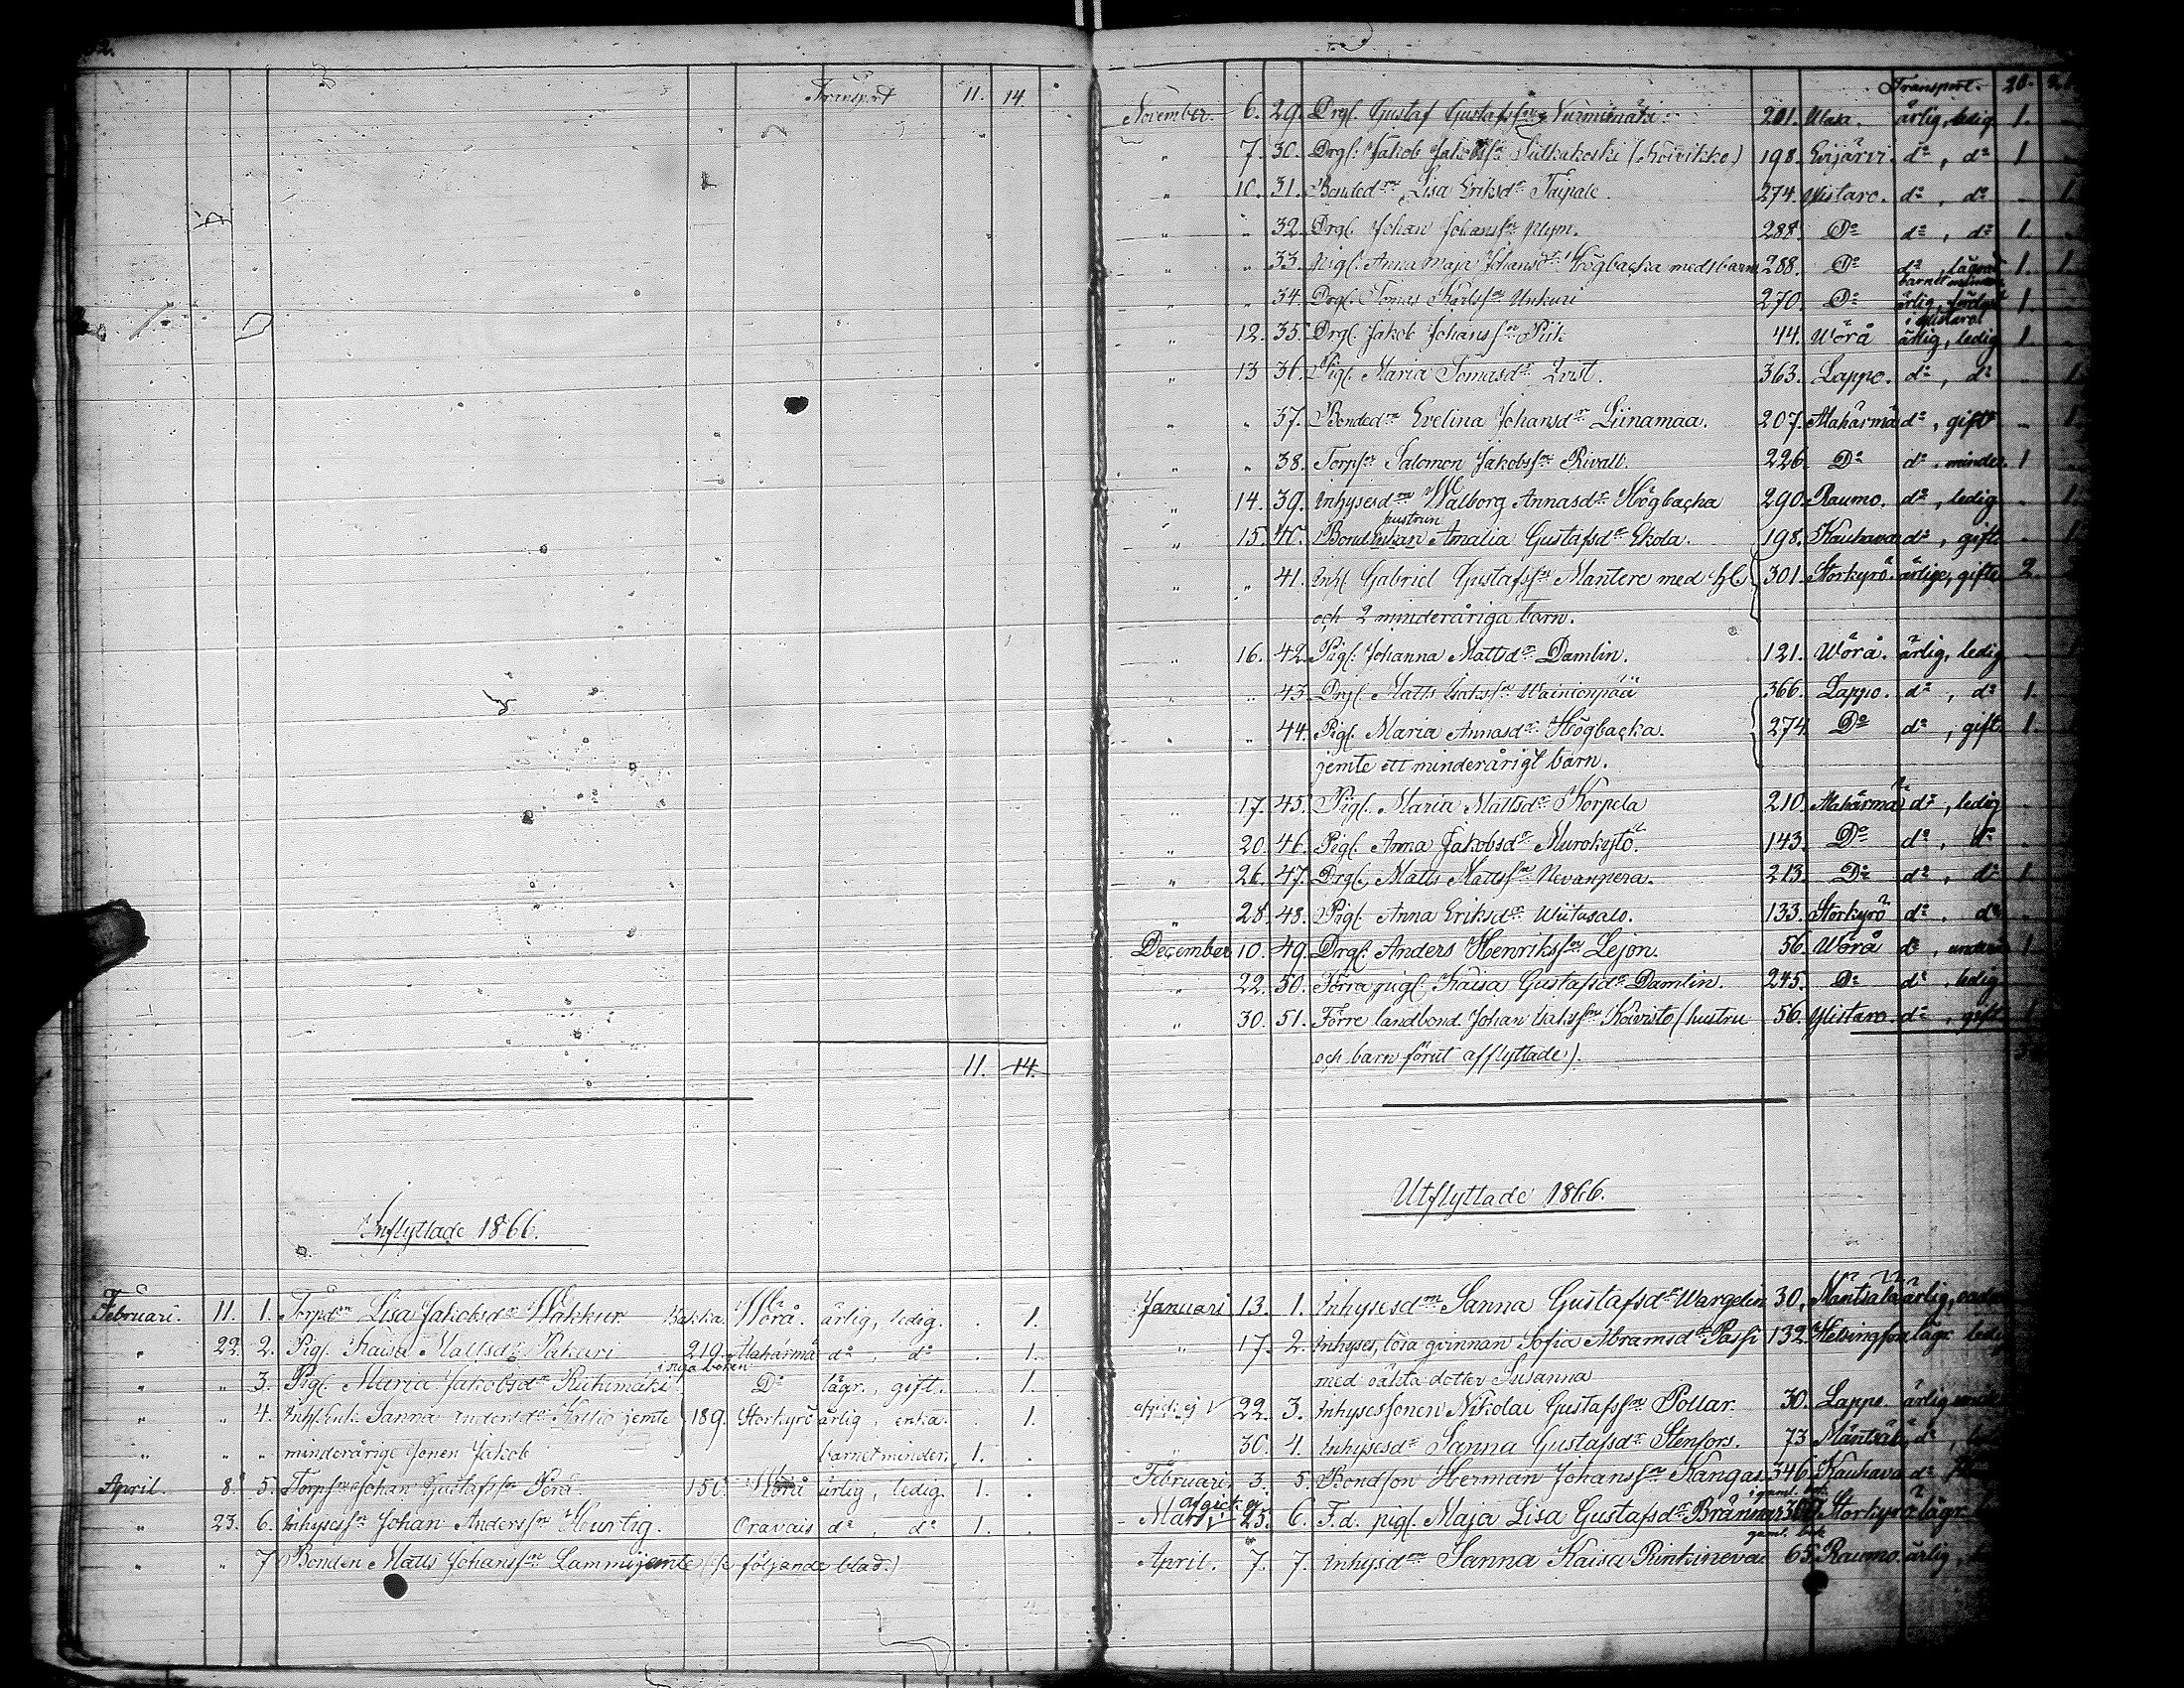 Transport 11. 14.
11. 14.
Inflyttade 1866.
Februari. 11. 1. Torpdn Lisa Jakobsdr Wakkur. Wörå. ärlig, ledig. . 1.
" 22. 2. Pigl. Kaisa Mattsdr Pakuri 219. Alahärmä do, do . 1.
i nya boken
" " 3. Pigl. Maria Jakobsdr Riihimäki. Do lägr., gift. . 1.
" " 4. Inhs. enk. Sanna Andersdr Kallio jemte 189. Storkyrö ärlig, enka. . 1.
" " " minderårige sonen Jakob barnet minder. 1. .
April. 8. 5. Torpsn Johan Gustafssn Perä. 150. Wörå ärlig, ledig. 1. .
" 23. 6. Inhysessn Johan Anderssn Hurtig. Oravais do, do 1. .
" " 7. Bonden Matts Johanssn Lammi jemte (se följande blad.)
Transport. 20. 21.
November. 6. 29. Drgl. Gustaf Gustafssn Nurmimäki. 201. Wasa. ärlig, ledig 1.
" 7. 30. Drgl. Jakob Jakobssn Sulkakoski (Koivikko) 198. Evijärvi. do, do 1
" 10. 31. Bondedn Lisa Eriksdr Taipale. 274. Ylistaro. do, do . 1.
" " 32. Drgl. Johan Johanssn Nym. 288. Do do, do 1.
" " 33. Pigl. Anna Maja Johansdr Högbacka med barn 288. Do do, lägrad 1. 1.
barnet
" " 34. Drgl. Tomas Karlssn Unkuri 270. Do ärlig, 1.
i Ylistaro
" 12. 35. Drgl. Jakob Johanssn Piik 44. Wörå ärlig, ledig 1.
" 13 36. Pigl. Maria Tomasdr Qvist. 363. Lappo. do, do . 1.
" " 37. Bondedn Evelina Johansdr Liinamaa. 207. Alahärmä do, gift . 1.
" " 38. Torpsn Salomon Jakobssn Rivall. 226. Do do, minder. 1
" 14. 39. Inhysesdn Walborg Annasdr Högbacka 290. Raumo. do, ledig . 1.
hustrun
" 15. 40. Bond Amalia Gustafsdr Ekola. 198. Kauhava do, gift . 1.
" " 41. Inhs. Gabriel Gustafssn Mantere med h. 301. Storkyrö. ärlige, gifte 2. 2
och 2 minderåriga barn.
" 16. 42. Pigl. Johanna Mattsdr Damlin. 121. Wörå. ärlig, ledig
" " 43. Drgl. Matts Isakssn Wainionpää 366. Lappo. do, do 1.
" " 44. Pigl. Maria Annasdr Högbacka. 274 Do do, gift. 1.
jemte ett minderårigt barn.
17. 45. Pigl. Maria Mattsdr Korpela 210. Alahärmä do, ledig
" 20. 46. Pigl. Anna Jakobsdr Murokytö. 143. Do do, do
" 26. 47. Drgl. Matts Mattssn Nevanperä. 213. Do do, do 1.
" 28. 48. Pigl. Anna Eriksdr Wiitasalo. 133. Storkyrö do, do
December 10. 49. Drgl. Anders Henrikssn Lejon. 56. Wörå do, 1
" 22. 50. Förra pigl. Kaisa Gustafsdr Damlin. 245. Do do, ledig
" 30. 51. Förre landbond Johan Isakssn Koivisto (hustru 56. Ylistaro. do, gift 1
och barn förut afflyttade).
Utflyttade 1866.
Januari 13. 1. Inhysesdn Sanna Gustafsdr Wargelin 30. Mäntsälä ärlig,
" 17. 2. Inhyses, lösa qvinnan Sofia Abramsdr Passi 132. Helsingfors lägr. ledig
med oäkta dotter Susanna
afgick ej V 22. 3. Inhysessonen Nikolai Gustafssn Pollar. 30. Lappo ärlig
" 30. 4. Inhysesdr Sanna Gustafsdr Stenfors. 73 Mäntsälä do,
Februari 3. 5. Bondson Herman Johanssn Kangas. 346. Kauhava do
i gaml. bok.
afgick ej
Mars V 25. 6. F.d. pigl. Maja Lisa Gustafsdr Bränn Storkyrö lägr.
gaml. bok
April. 7. 7. Inhysdn Sanna Kaisa Rinkineva 65. Raumo. ärlig,